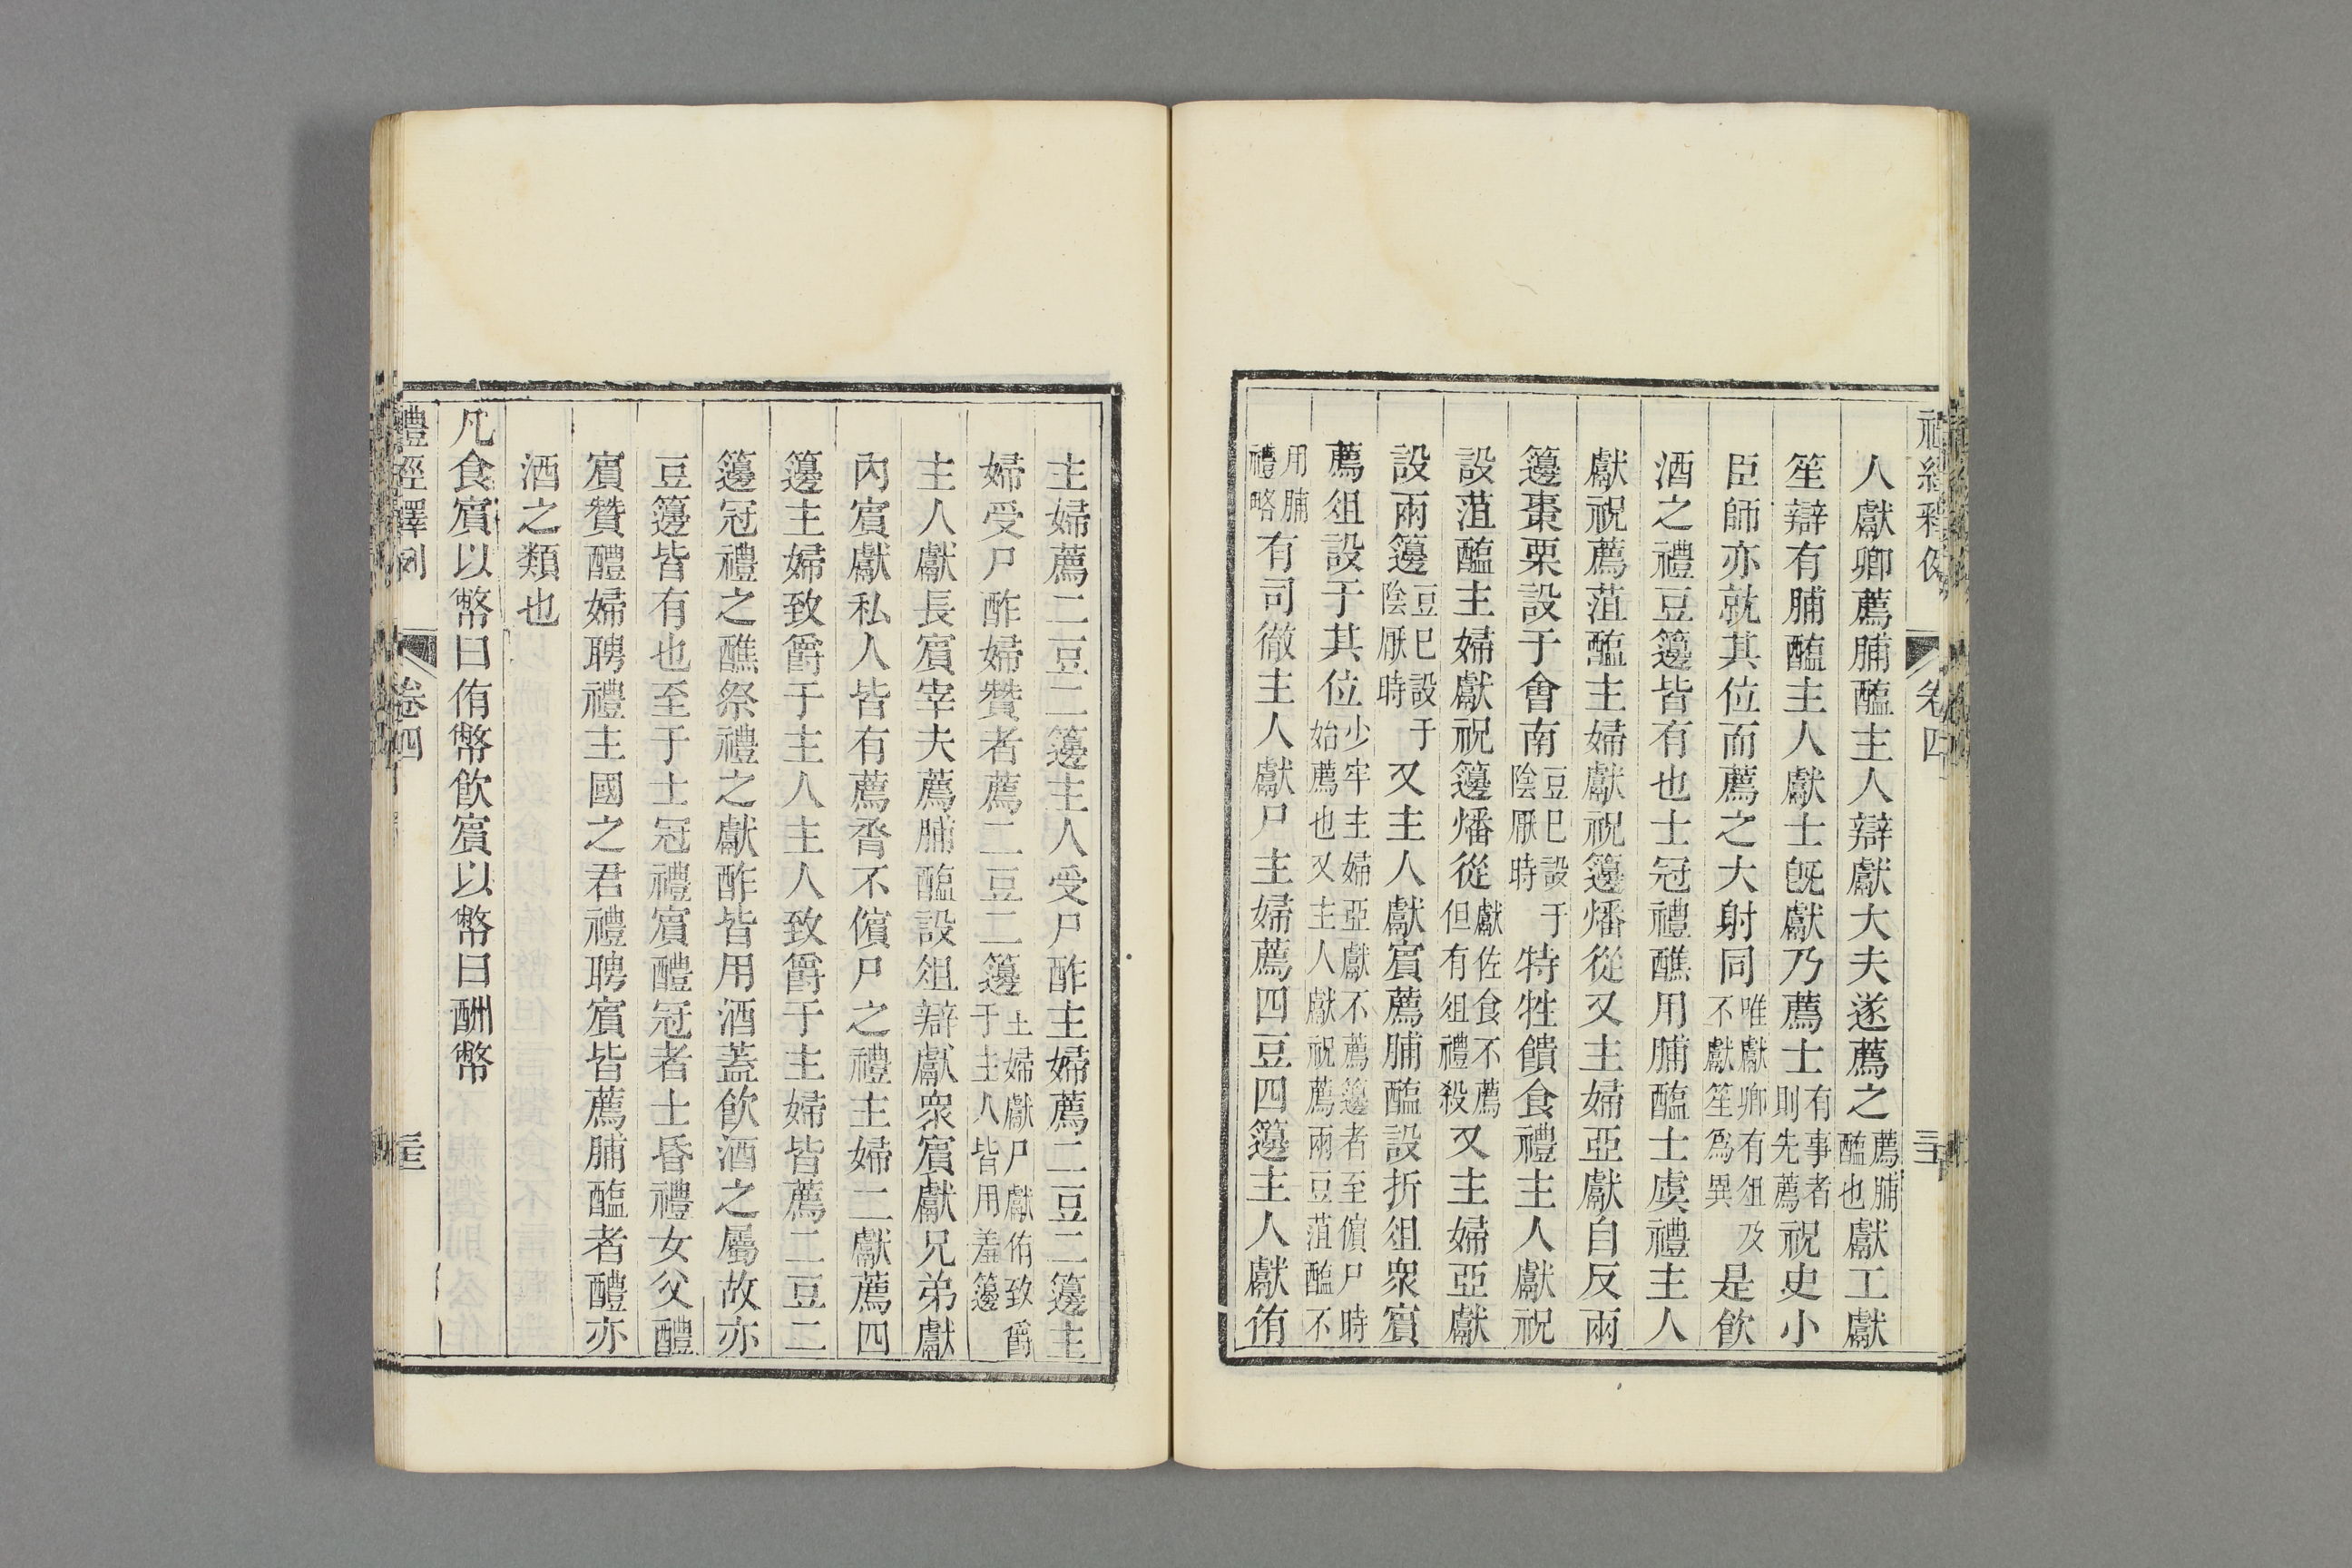 人獻卿薦脯醢主人辯獻大夫遂薦之薦脯醢也獻工獻
笙辯有脯醢主人獻士旣獻乃薦士有事者則先薦祝史小
臣師亦就其位而薦之大射同唯獻卿有俎及不獻笙爲異是飲
酒之禮豆籩皆有也士冠禮醮用脯醢士虞禮主人
獻祝薦菹醢主婦獻祝籩燔從又主婦亞獻自反兩
籩棗栗設于會南豆巳設于陰厭時特牲饋食禮主人獻祝
設菹醢主婦獻祝籩燔從獻佐食不薦但有俎禮殺又主婦亞獻
設兩籩豆巳設于陰厭時又主人獻賓薦脯醢設折俎衆賓
薦俎設于其位少牢主婦亞獻不薦籩者至儐尸時始薦也又主人獻祝薦兩豆菹醢不
用脯禮略有司徹主人獻尸主婦薦四豆四籩主人獻侑
主婦薦二豆二籩主人受尸酢主婦薦二豆二籩主
婦受尸酢婦贊者薦二豆二籩主婦獻尸獻侑致爵于主人皆用羞籩
主人獻長賓宰夫薦脯醢設俎辯獻衆賓獻兄弟獻
內賓獻私人皆有薦脀不儐尸之禮主婦二獻薦四
籩主婦致爵于主人主人致爵于主婦皆薦二豆二
籩冠禮之醮祭禮之獻酢皆用酒蓋飲酒之屬故亦
豆籩皆有也至于士冠禮賓醴冠者士昏禮女父醴
賓贊醴婦聘禮主國之君禮聘賓皆薦脯醢者醴亦
酒之類也
凡食賓以幣曰侑幣飲賓以幣曰酬幣
禮經釋例 卷四